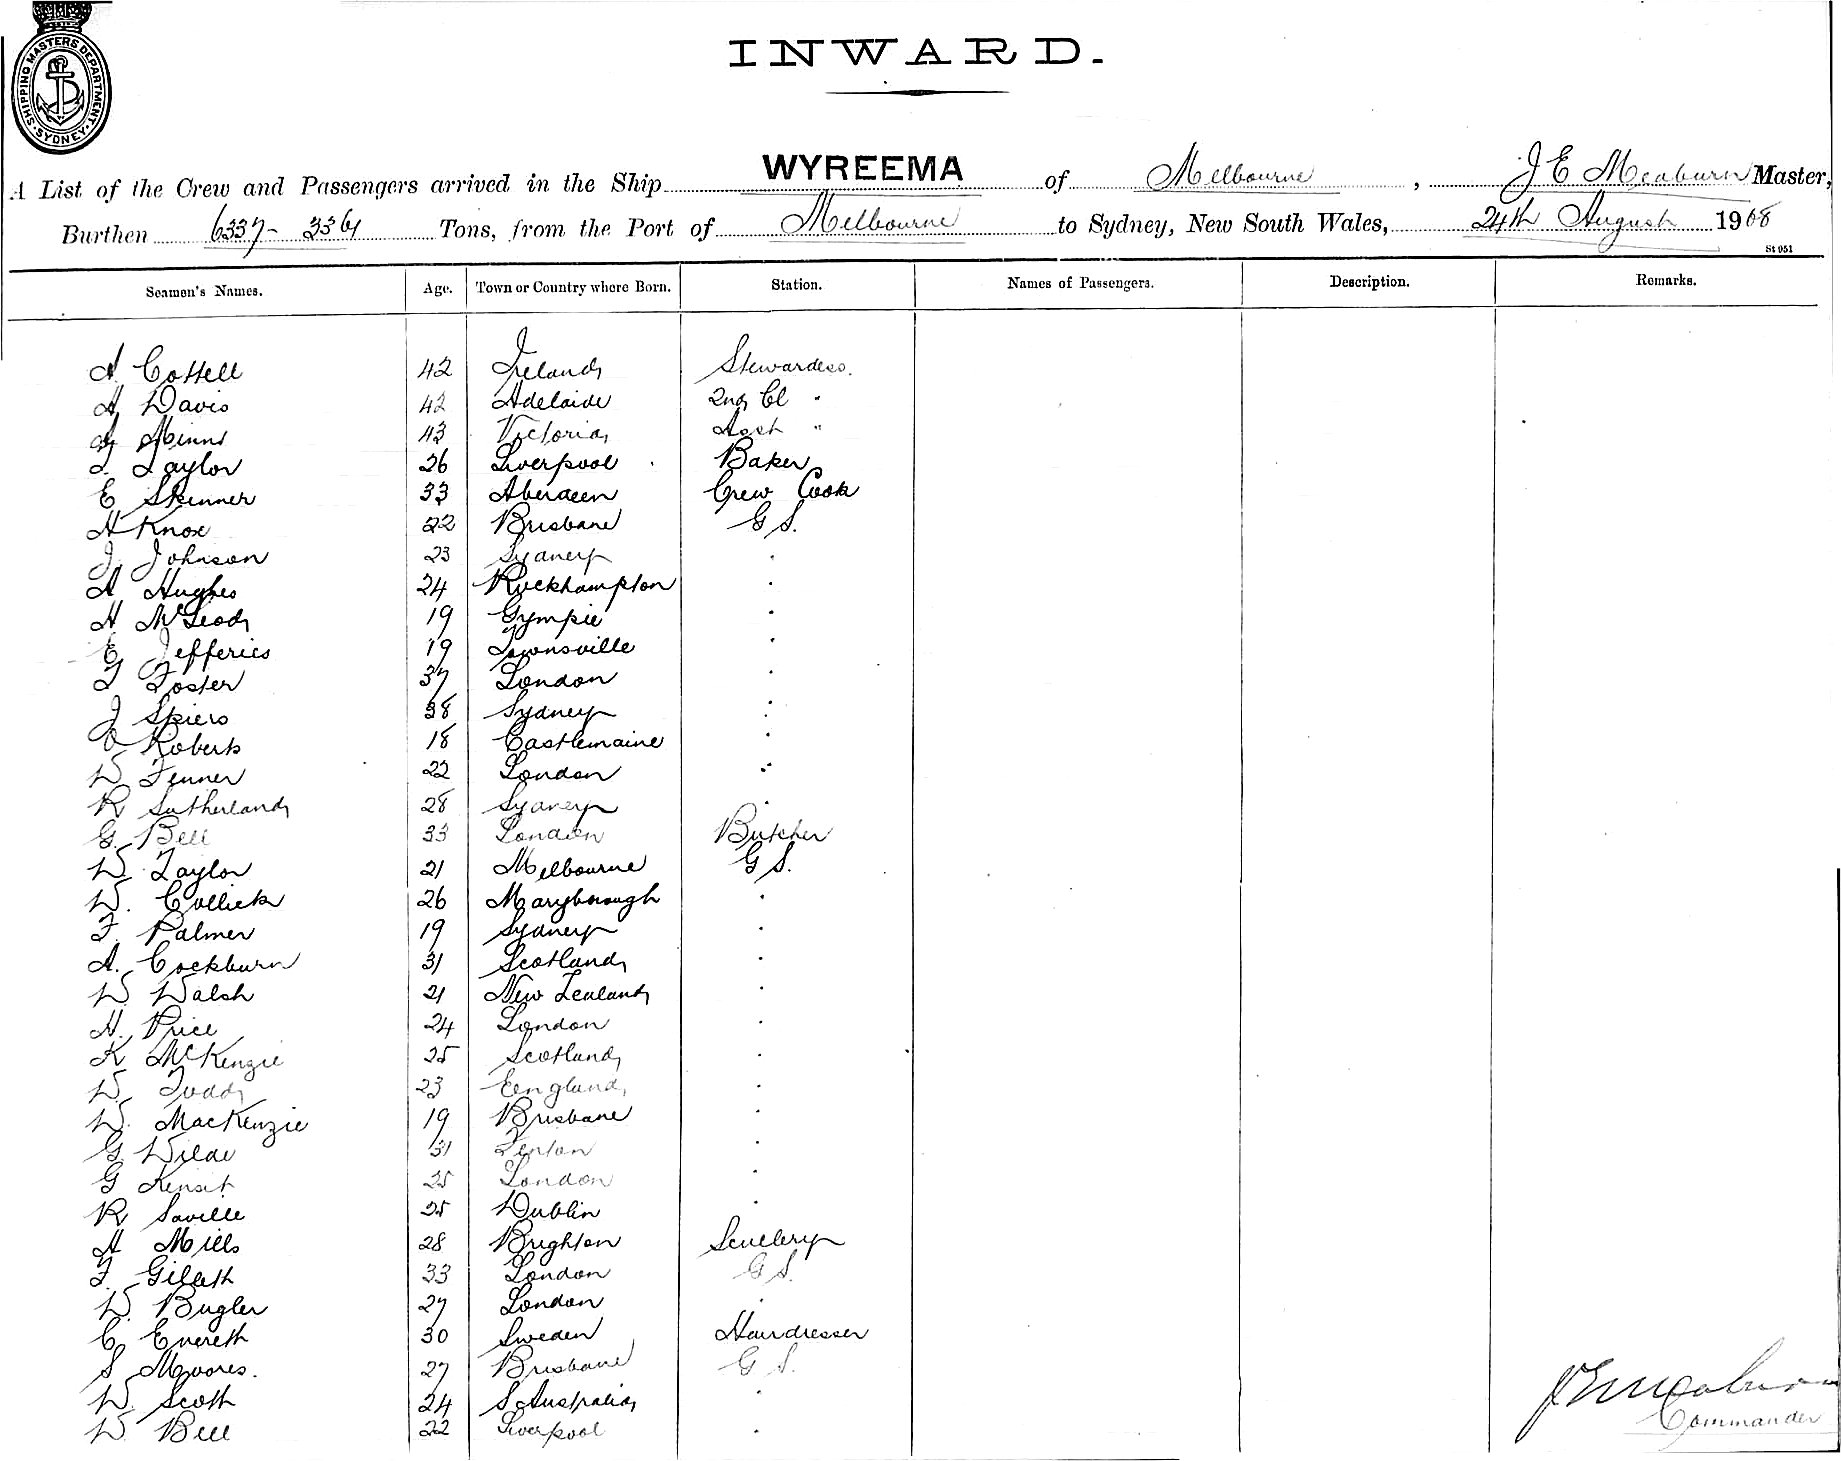 SHIPPING MASTERS DEPARTMENT. SYDNEY.
INWARD.
A List of the Crew and Passengers arrived in the Ship WYREEMA of Melbourne, J E Meaburn Master,
Burthen 6337 - 3361 Tons, from the Port of Melbourne to Sydney, New South Wales, 24th August 1908
St 951
Seamen's Names. Age. Town or Country where Born. Station. Names of Passengers. Description. Remarks.
A. Cottell 42 Ireland Stewardess.
A Davis 42 Adelaide 2nd Cl "
43 Victoria Asst "
Taylor 26 Liverpool Baker
E Skinner 33 Aberdeen Crew Cook
H Knox 22 Brisbane G S.
J. Johnson 23 Sydney "
A Hughes 24 Rockhampton "
H McLeod 19 Gympie "
E Jefferies 19 Townsville "
T Foster 37 London "
J Spiers 38 Sydney "
Roberts 18 Castlemaine "
W Fenner 22 London "
R Sutherland 28 Sydney "
G. Bell 33 London Butcher
W Taylor 21 Melbourne G S.
W. Collick 26 Maryborough "
F. Palmer 19 Sydney "
A. Cockburn 31 Scotland "
W. Walsh 21 New Zealand "
H. Price 24 London "
K McKenzie 25 Scotland "
W. Todd 23 Eengland "
W. MacKenzie 19 Brisbane "
G. Wilde 31 "
G Kensit 25 London "
R Saville 25 Dublin "
A Mills 28 Brighton Scullery
F. 33 London G S.
W. Bugler 27 London "
C. Evereth 30 Sweden Hairdresser
S Moores. 27 Brisbane G S.
W. Scott 24 S Australia "
W Bell 22 Liverpool "
J E Meaburn
Commander